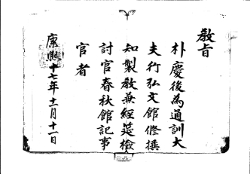 敎旨
朴慶後為通訓大
夫行弘文館修撰
知製敎兼經筵檢
討官春秋館記事
官者
康熙十七年十一月十一日